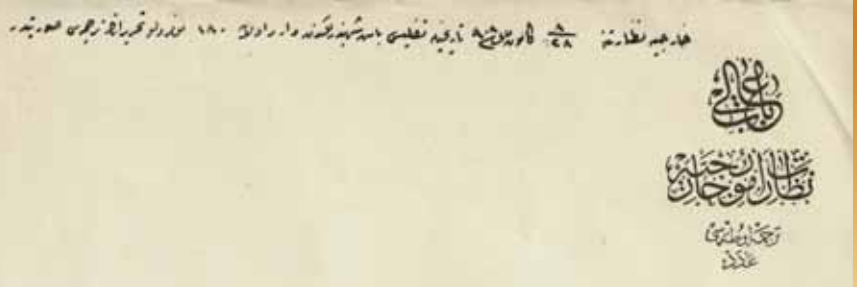 خارجیه نظارتنه ٩/٢٨ كانون تاریخیله تفلیس باش شهبندرلگندن وارد اولان ١٨٠ نومرولو تحریراتڭ ترجمه‌سی صورتیدر
باب عالی
نظارت امور خارجیه
ترجمه اوطه‌سی
عدد